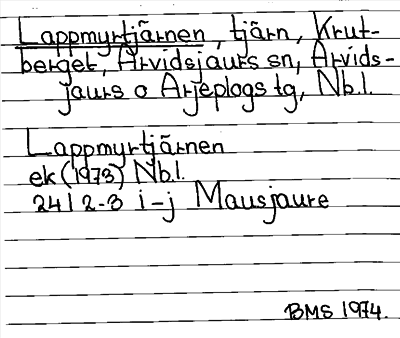 Lappmyrtjärnen, tjärn, Krut-
berget, Arvidsjaurs sn, Arvids-
jaurs o Arjeplogs tg, Nb.l.
Lappmyrtjärnen
ek (1973) Nb.l.
24I 2-3 i-j Mausjaure
BMS 1974.